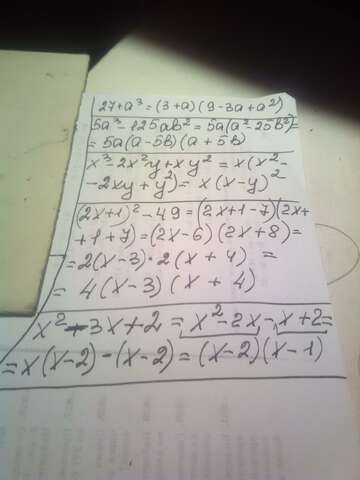 27+a³=(3+a)(9-3a+a²)
5a³-125ab²=5a(a²-25b²)=
=5a(a-5b)(a+5b)
x³-2x²y+xy²=x(x²-
-2xy+y²)=x(x-y)²
(2x+1)²-49=(2x+1-7)(2x+
+1+7)=(2x-6)(2x+8)=
=2(x-3)·2(x+4)=
=4(x-3)(x+4)
x²-3x+2=x²-2x-x+2=
=x(x-2)-(x-2)=(x-2)(x-1)